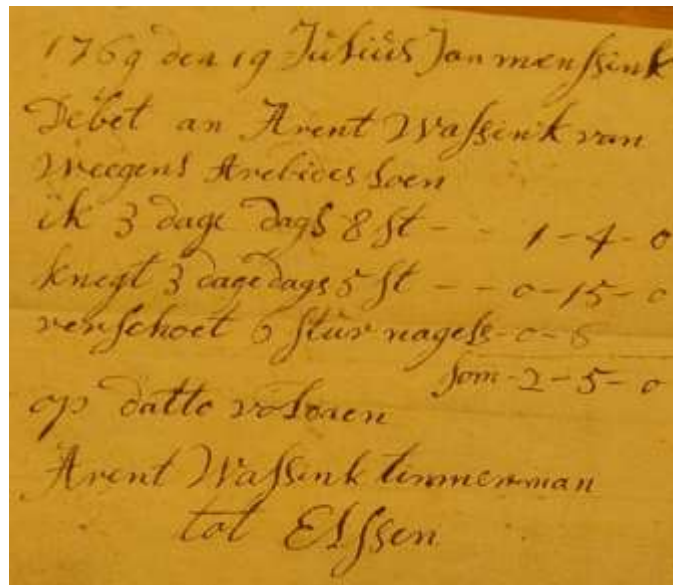 1769 den 19 Julius Jan menssink
Debet an Arent Wassink van
Weegens Arebides Loen
ik 3 dage dags 8 st - - 1-4-0
knegt 3 dage dags 5 st - - 0-15-0
verschoet 6 stuv nagels-0-6
som-2-5-0
op datto voloaen
Arent Wassink timmerman
tot Elssen